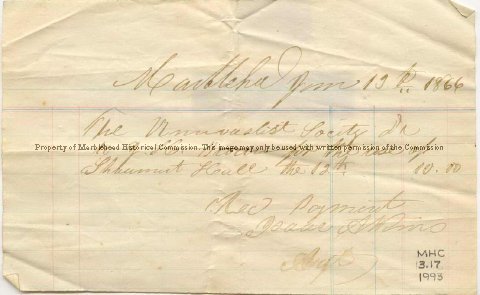 Marblehead Jan 13th 1866
The Universalist Society Dr
Property of Marblehead Historical Commission. This image may only be used with written permission of the Commission
for the use of
Shhumut Hall the 12th 10.00
Rec Payment
Isaac Atkins
MHC
3.17
1993